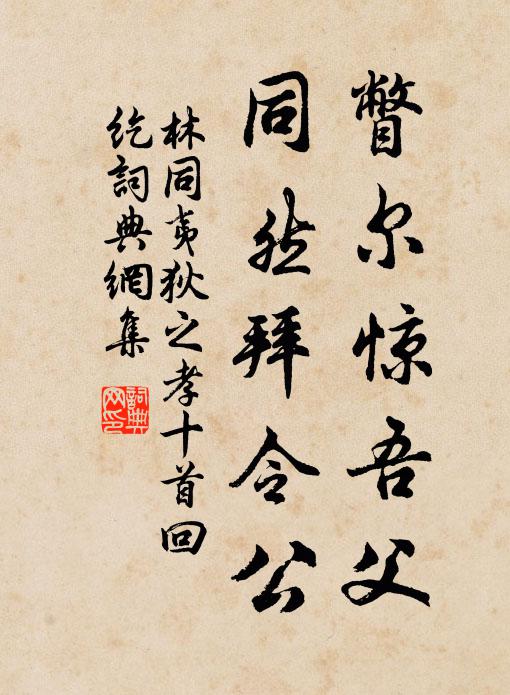 瞥尔惊吾父
同然拜令公
林同夷狄之孝十首回
纥詞典網集
詞典
网印